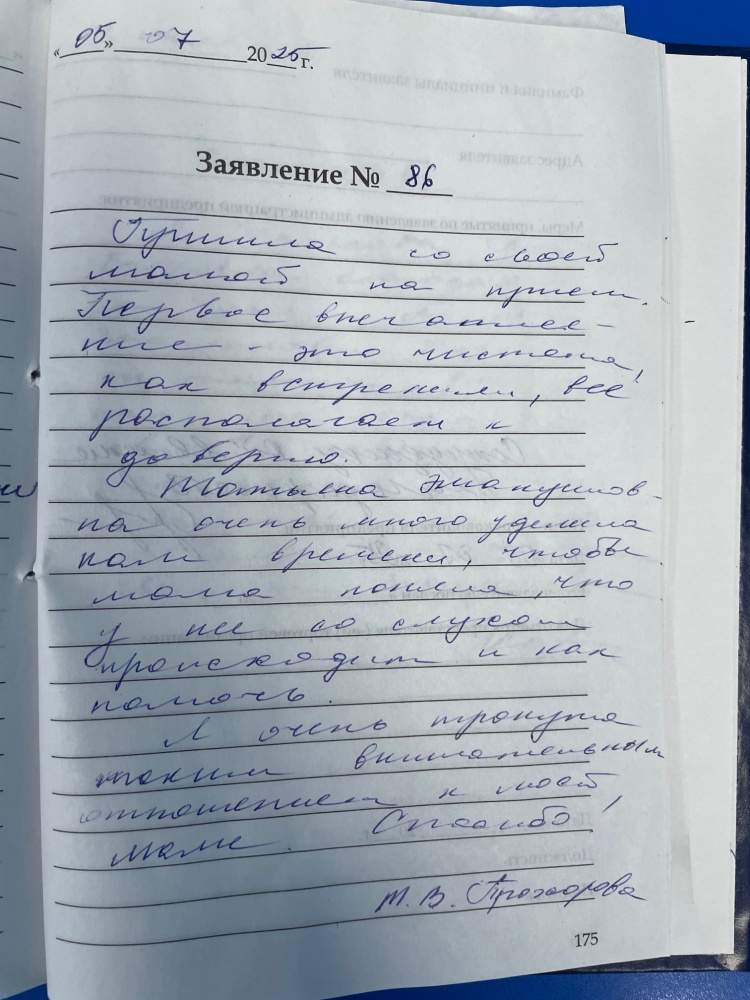 «05» 07 2025 г.
Заявление № 86
Пришла со своей
мамой на прием.
Первое впечатле-
ние - это чистота,
как встретили, всё
располагает к
доверию.
Татьяна Эмануилов-
на очень много уделила
нам времени, чтобы
мама поняла, что
у нее со слухом
происходит и как
помочь.
Я очень тронута
таким внимательным
отношением к моей
маме. Спасибо!
Т. В. Прохорова
175